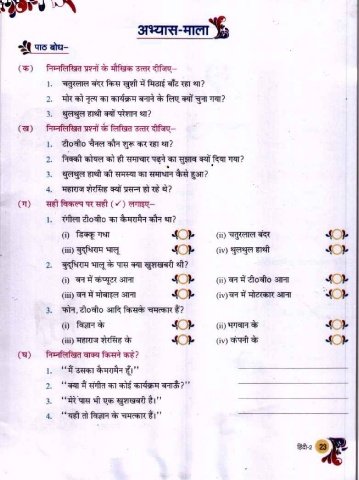 अभ्यास-माला
पाठ बोध–
(क) निम्नलिखित प्रश्नों के मौखिक उत्तर दीजिए–
1. चतुरलाल बंदर किस खुशी में मिठाई बाँट रहा था?
2. मोर को नृत्य का कार्यक्रम बनाने के लिए क्यों चुना गया?
3. थुलथुल हाथी क्यों परेशान था?
(ख) निम्नलिखित प्रश्नों के लिखित उत्तर दीजिए–
1. टी०वी० चैनल कौन शुरू कर रहा था?
2. निक्की कोयल को ही समाचार पढ़ने का सुझाव क्यों दिया गया?
3. थुलथुल हाथी की समस्या का समाधान कैसे हुआ?
4. महाराज शेरसिंह क्यों प्रसन्न हो रहे थे?
(ग) सही विकल्प पर सही (✓) लगाइए–
1. रंगीला टी०वी० का कैमरामैन कौन था?
(i) डिक्कू गधा (ii) चतुरलाल बंदर
(iii) बुद्धिराम भालू (iv) थुलथुल हाथी
2. बुद्धिराम भालू के पास क्या खुशखबरी थी?
(i) वन में कंप्यूटर आना (ii) वन में टी०वी० आना
(iii) वन में मोबाइल आना (iv) वन में मोटरकार आना
3. फोन, टी०वी० आदि किसके चमत्कार हैं?
(i) विज्ञान के (ii) भगवान के
(iii) महाराज शेरसिंह के (iv) कंपनी के
(घ) निम्नलिखित वाक्य किसने कहे?
1. "मैं उसका कैमरामैन हूँ।"
2. "क्या मैं संगीत का कोई कार्यक्रम बनाऊँ?"
3. "मेरे पास भी एक खुशखबरी है।"
4. "यही तो विज्ञान के चमत्कार हैं।"
हिंदी-2 23